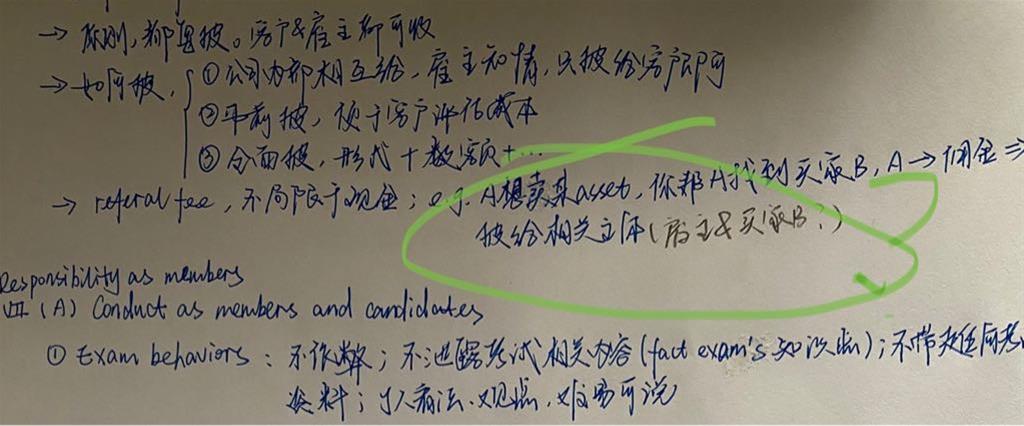 → 原则，都要披。客户&雇主都可收
→ 如何披，①公司内部相互给，雇主知情，只披给客户即可
②早前披，便于客户评估成本
③全面披，形式+数额+…
→ referal fee，不局限于现金；e.g. A想卖某asset，你帮A找到买家B，A→佣金⇒
披给相关主体(雇主&买家B？)
Responsibility as members
Ⅶ (A) Conduct as members and candidates
① Exam behaviors：不作弊；不泄露考试相关内容(fact exam's 知识点)；不带
资料；个人看法、观点、难易可说